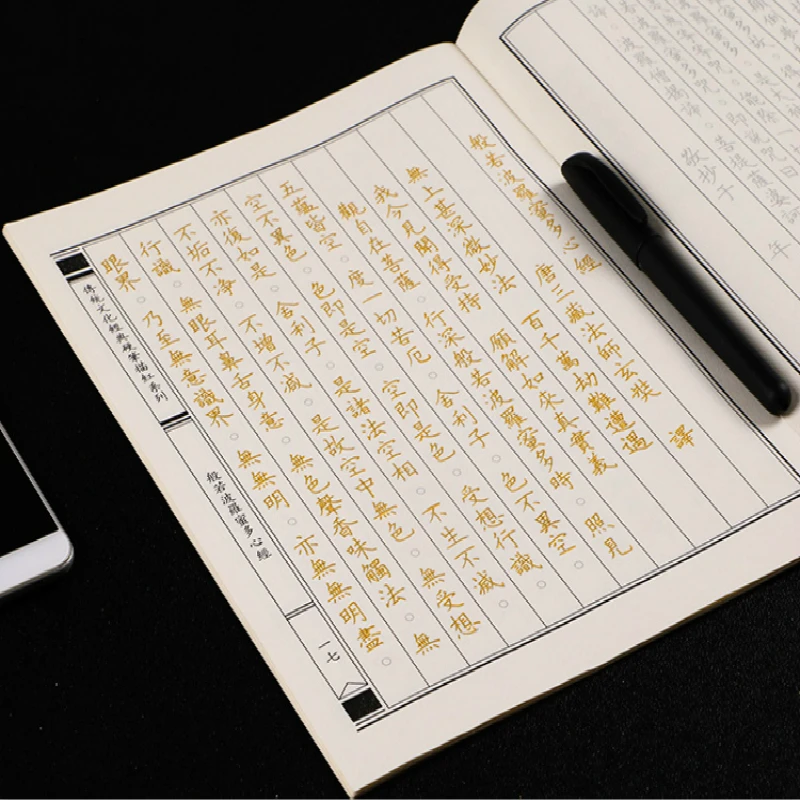 波羅僧揭諦。菩提薩婆訶
敬抄于
年
般若波羅蜜多心經
唐三藏法師玄奘 譯
無上甚深微妙法 百千萬劫難遭遇
我今見聞得受持 願解如來真實義
觀自在菩薩。行深般若波羅蜜多時。照見
五蘊皆空。度一切苦厄。舍利子。色不異空。
空不異色。色即是空。空即是色。受想行識。
亦復如是。舍利子。是諸法空相。不生不滅。
不垢不淨。不增不減。是故空中無色。無受想
行識。無眼耳鼻舌身意。無色聲香味觸法。無
眼界。乃至無意識界。無無明。亦無無明盡。
傳統文化經典硬筆描紅系列
般若波羅蜜多心經
一七